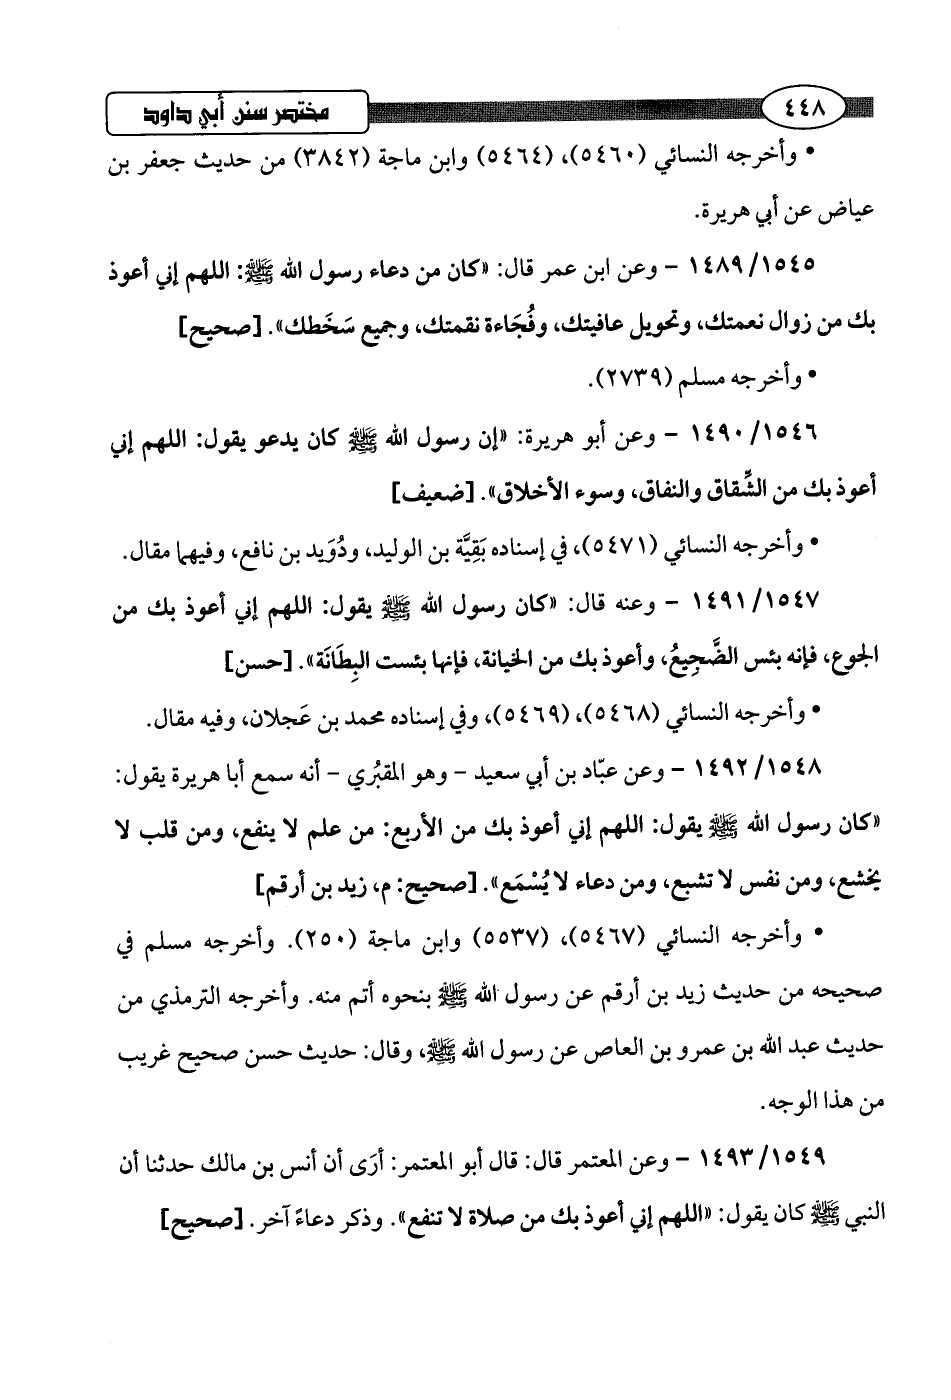 ٤٤٨ مختصر سنن أبي داود
• وأخرجه النسائي (٥٤٦٠)، (٥٤٦٤) وابن ماجة (٣٨٤٢) من حديث جعفر بن
عياض عن أبي هريرة.
١٤٨٩/١٥٤٥ - وعن ابن عمر قال: «كان من دعاء رسول الله ﷺ: اللهم إني أعوذ
بك من زوال نعمتك، وتحويل عافيتك، وفُجَاءة نقمتك، وجميع سَخَطك». [صحيح]
• وأخرجه مسلم (٢٧٣٩).
١٤٩٠/١٥٤٦ - وعن أبو هريرة: «إن رسول الله ﷺ كان يدعو يقول: اللهم إني
أعوذ بك من الشِّقاق والنفاق، وسوء الأخلاق». [ضعيف]
• وأخرجه النسائي (٥٤٧١)، في إسناده بَقِيَّة بن الوليد، ودُوَيد بن نافع، وفيهما مقال.
١٤٩١/١٥٤٧ - وعنه قال: «كان رسول الله ﷺ يقول: اللهم إني أعوذ بك من
الجوع، فإنه بئس الضَّجِيعُ، وأعوذ بك من الخيانة، فإنها بئست البِطَانَة». [حسن]
• وأخرجه النسائي (٥٤٦٨)، (٥٤٦٩)، وفي إسناده محمد بن عَجلان، وفيه مقال.
١٤٩٢/١٥٤٨ - وعن عبّاد بن أبي سعيد - وهو المقبُري - أنه سمع أبا هريرة يقول:
«كان رسول الله ﷺ يقول: اللهم إني أعوذ بك من الأربع: من علم لا ينفع، ومن قلب لا
يخشع، ومن نفس لا تشبع، ومن دعاء لا يُسْمَع». [صحيح: م، زيد بن أرقم]
• وأخرجه النسائي (٥٤٦٧)، (٥٥٣٧) وابن ماجة (٢٥٠). وأخرجه مسلم في
صحيحه من حديث زيد بن أرقم عن رسول الله ﷺ بنحوه أتم منه. وأخرجه الترمذي من
حديث عبد الله بن عمرو بن العاص عن رسول الله ﷺ، وقال: حديث حسن صحيح غريب
من هذا الوجه.
١٤٩٣/١٥٤٩ - وعن المعتمر قال: قال أبو المعتمر: أرَى أن أنس بن مالك حدثنا أن
النبي ﷺ كان يقول: «اللهم إني أعوذ بك من صلاة لا تنفع». وذكر دعاءً آخر. [صحيح]